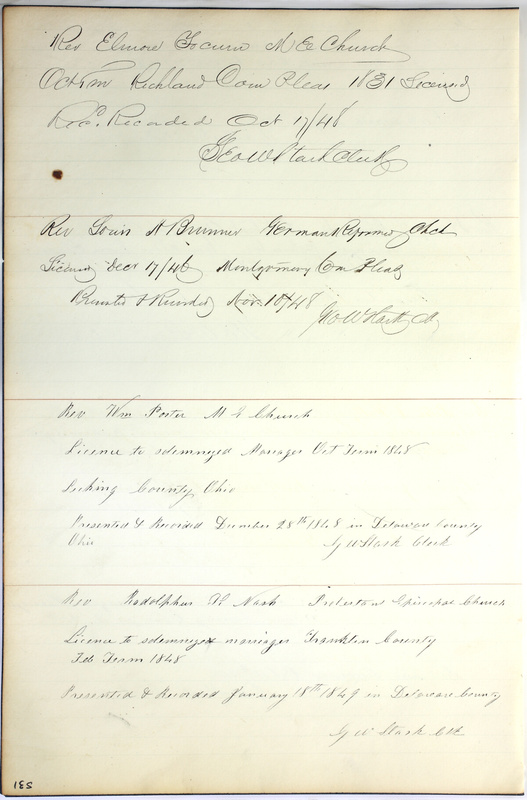 Rev Elmore Yocum M E Church
Oct Tm Richland Com Pleas 1831 Licensed
Rec. Recorded Oct 17/48
Geo W Stark Clerk
Rev Louis A Brunner German Reformed Chch
Licensed Decr 17/46 Montgomery Com Pleas
Presented & Recorded Nov. 10/48
Geo W Stark Clk
Rev Wm Porter M E Church
Licence to solemnized Marriages Oct Term 1848
Licking County Ohio
Presented & Recorded December 28th 1848 in Delaware County
Ohio G W Stark Clerk
Rev Rodolphus K Nash Protestant Episcopal Church
Licence to solemnize marriages Franklin County
Feb Term 1848
Presented & Recorded January 18th 1849 in Delaware County
G W Stark Clk
185